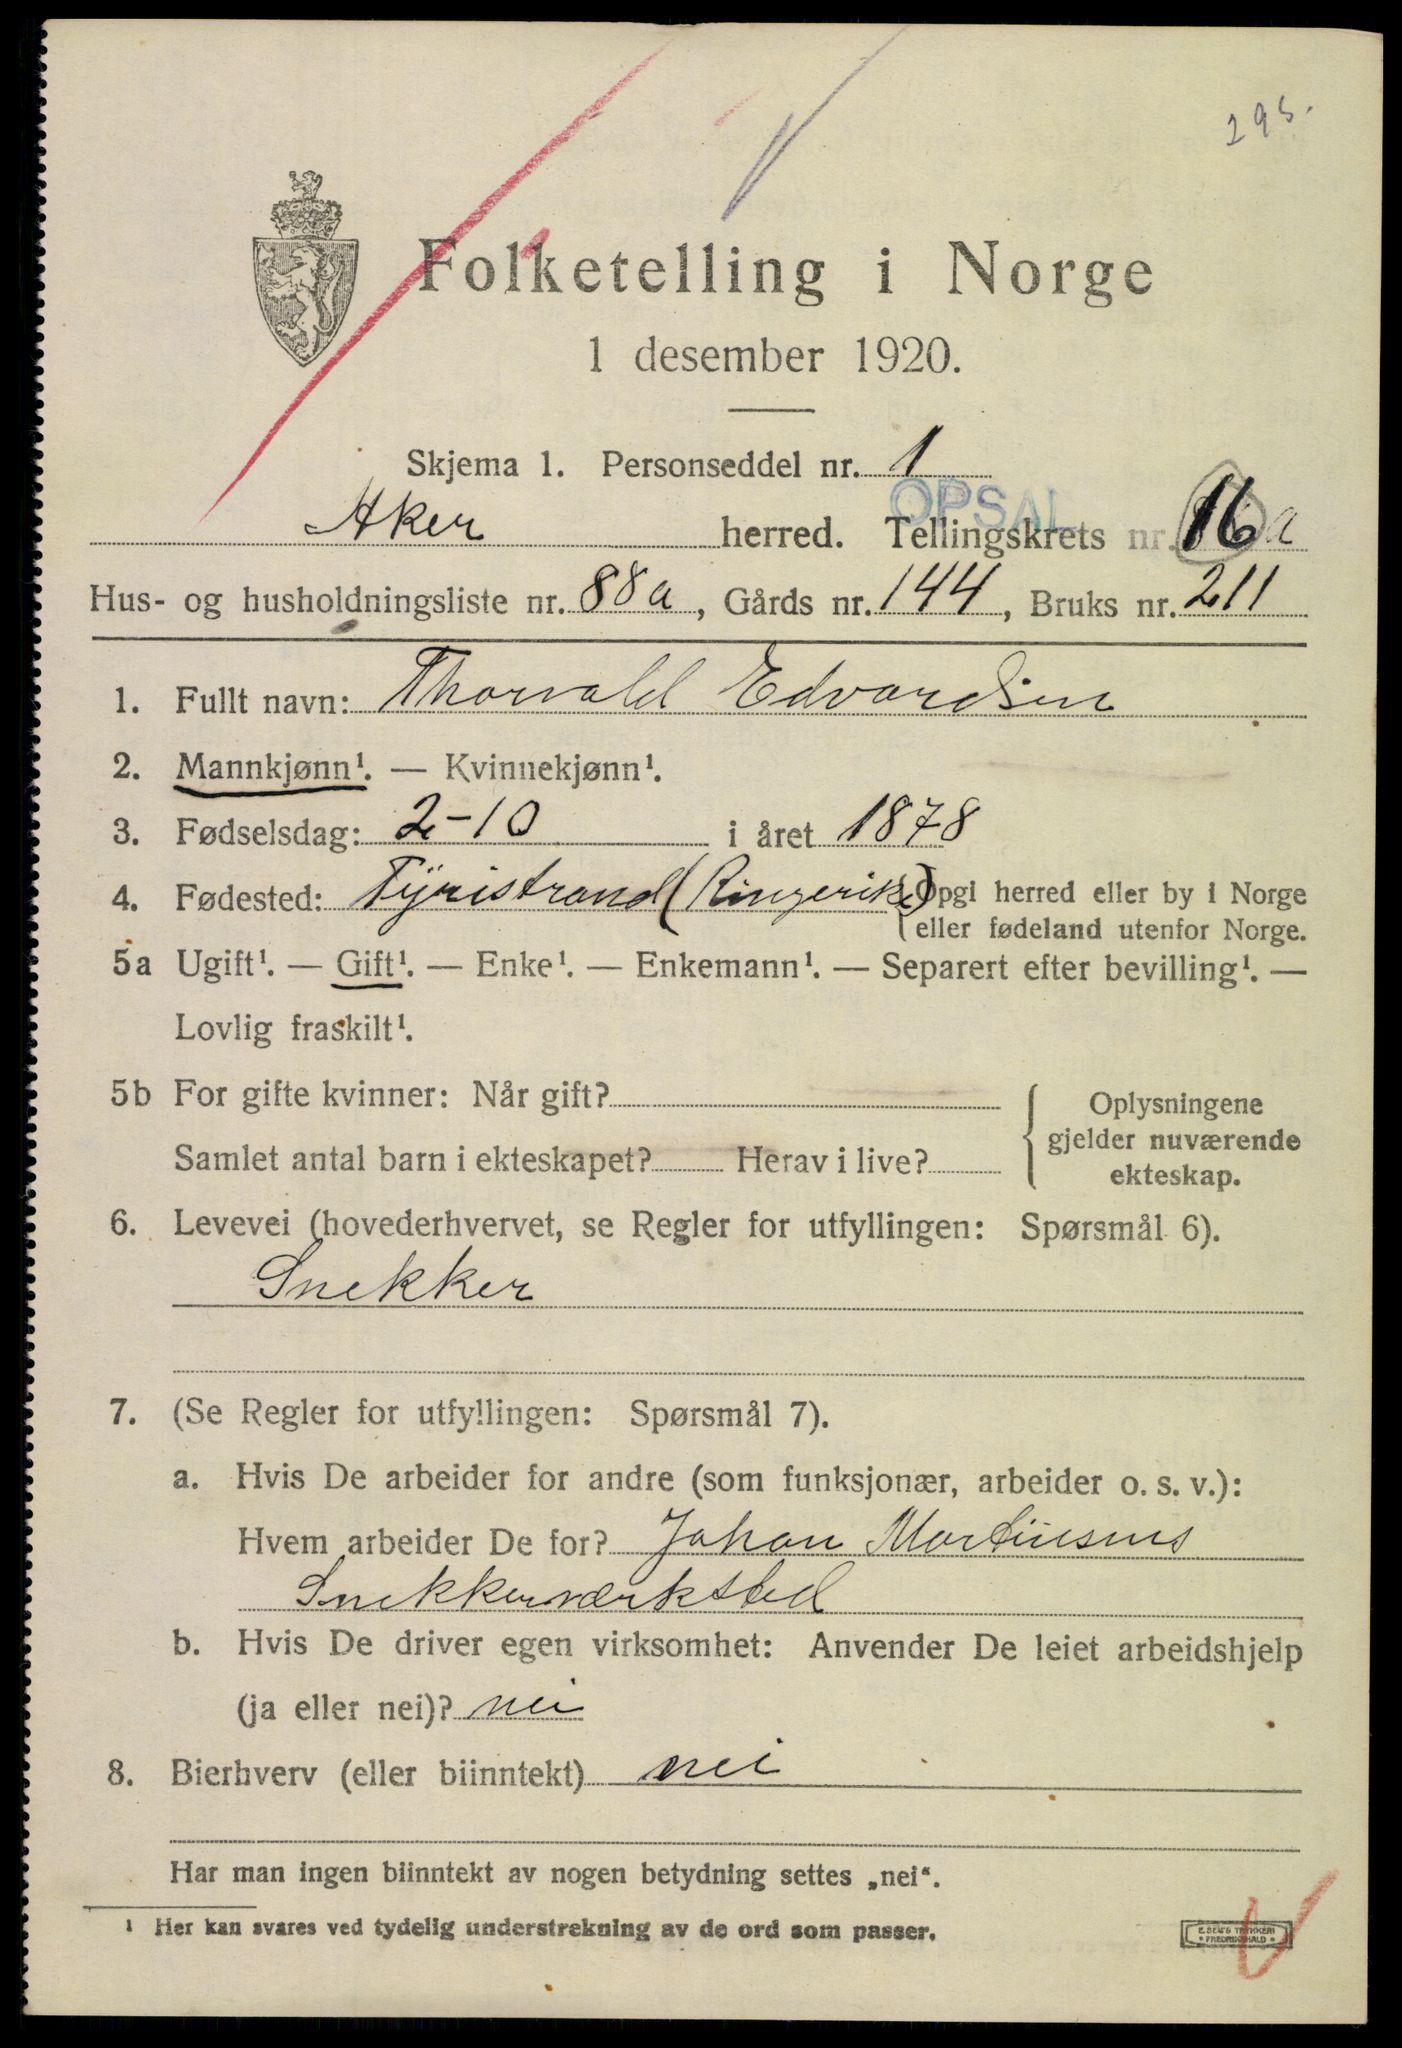 295.
Folketelling i Norge
1 desember 1920.
Skjema 1. Personseddel nr. 1
OPSAL
Aker herred. Tellingskrets nr. 16 a
Hus- og husholdningsliste nr. 88a, Gårds nr. 144, Bruks nr. 211
1. Fullt navn: Thorvald Edvardsen
2. Mannkjønn¹. — Kvinnekjønn¹.
3. Fødselsdag: 2-10 i året 1878
4. Fødested: Tyristrand (Ringerike) (Opgi herred eller by i Norge
eller fødeland utenfor Norge.
5a Ugift¹. — Gift¹. — Enke¹. — Enkemann¹. — Separert efter bevilling¹. —
Lovlig fraskilt¹.
5b For gifte kvinner: Når gift?
Samlet antal barn i ekteskapet? Herav i live?
Oplysningene
gjelder nuværende
ekteskap.
6. Levevei (hovederhvervet, se Regler for utfyllingen: Spørsmål 6).
Snekker
7. (Se Regler for utfyllingen: Spørsmål 7).
a. Hvis De arbeider for andre (som funksjonær, arbeider o. s. v.):
Hvem arbeider De for? Johan Martiusens
Snekkerværksted
b. Hvis De driver egen virksomhet: Anvender De leiet arbeidshjelp
(ja eller nei)? nei
8. Bierhverv (eller biinntekt) nei
Har man ingen biinntekt av nogen betydning settes „nei“.
¹ Her kan svares ved tydelig understrekning av de ord som passer.
E. SEM'S TRYKKERI
FREDRIKSHALD